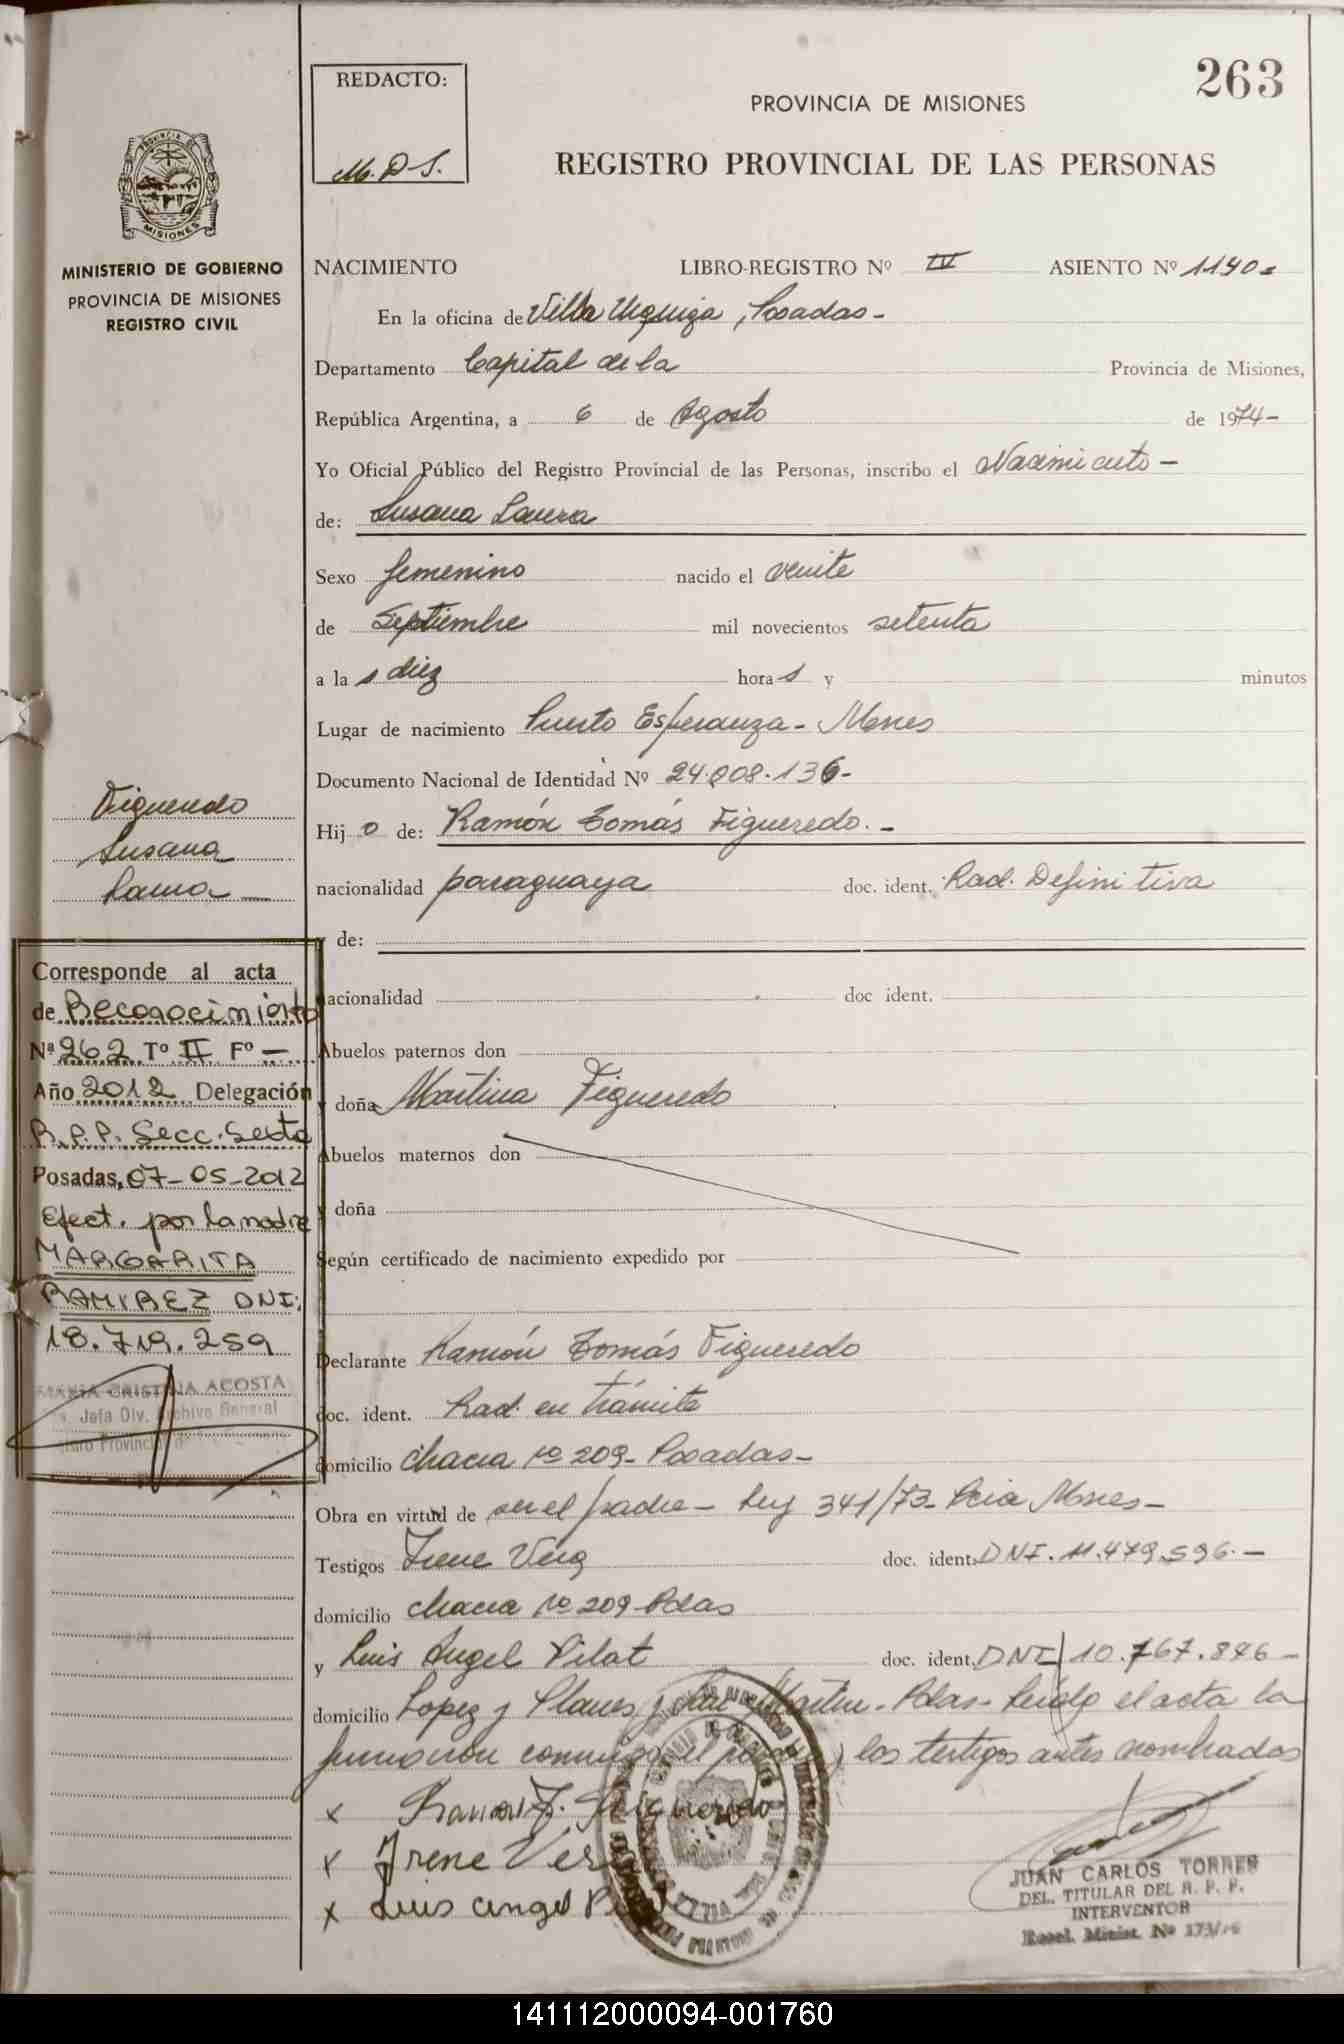 263
REDACTO:
M. D S.
PROVINCIA DE MISIONES
REGISTRO PROVINCIAL DE LAS PERSONAS
MISIONES
MINISTERIO DE GOBIERNO
PROVINCIA DE MISIONES
REGISTRO CIVIL
NACIMIENTO LIBRO-REGISTRO Nº IV ASIENTO Nº 1190=
En la oficina de Villa Urquiza, Posadas-
Departamento Capital de la Provincia de Misiones,
República Argentina, a 6 de Agosto de 1974-
Yo Oficial Público del Registro Provincial de las Personas, inscribo el Nacimiento-
de: Susana Laura
Sexo femenino nacido el veinte
de Septiembre mil novecientos setenta
a la s diez hora s y minutos
Lugar de nacimiento Puerto Esperanza- Mnes
Documento Nacional de Identidad Nº 24.008.136-
Hij o de: Ramón Tomás Figueredo.-
nacionalidad paraguaya doc. ident. Rad. Definitiva
y de:
nacionalidad doc ident.
Abuelos paternos don
y doña Martina Figueredo
Abuelos maternos don
y doña
Según certificado de nacimiento expedido por
Declarante Ramón Tomás Figueredo
doc. ident. Rad. en trámite
domicilio Chacra nº 209- Posadas-
Obra en virtud de ser el padre- Ley 341/73- Pcia Mnes-
Testigos Irene Vera doc. ident. DNI. 11.479.596.-
domicilio Chacra nº 209 Pdas
y Luis Angel Pilat doc. ident. DNI 10.767.846-
domicilio Lopez y Planes y San Martin- Pdas- Leida el acta la
firmaron conmigo el padre y los testigos antes nombrados
x Ramon T. Figueredo
x Irene Vera
x Luis Angel
JUAN CARLOS TORRES
DEL. TITULAR DEL R. P. P.
INTERVENTOR
Resol. Minist. Nº 173/76
Figueredo
Susana
Laura
Corresponde al acta
de Reconocimiento
Nº 262 Tº II Fº -
Año 2012 Delegación
R.P.P. Secc. Sexta
Posadas, 07-05-2012
Efect. por la madre
MARGARITA
RAMIREZ DNI:
18.719.259
MARIA CRISTINA ACOSTA
Jefa Div. Archivo General
141112000094-001760